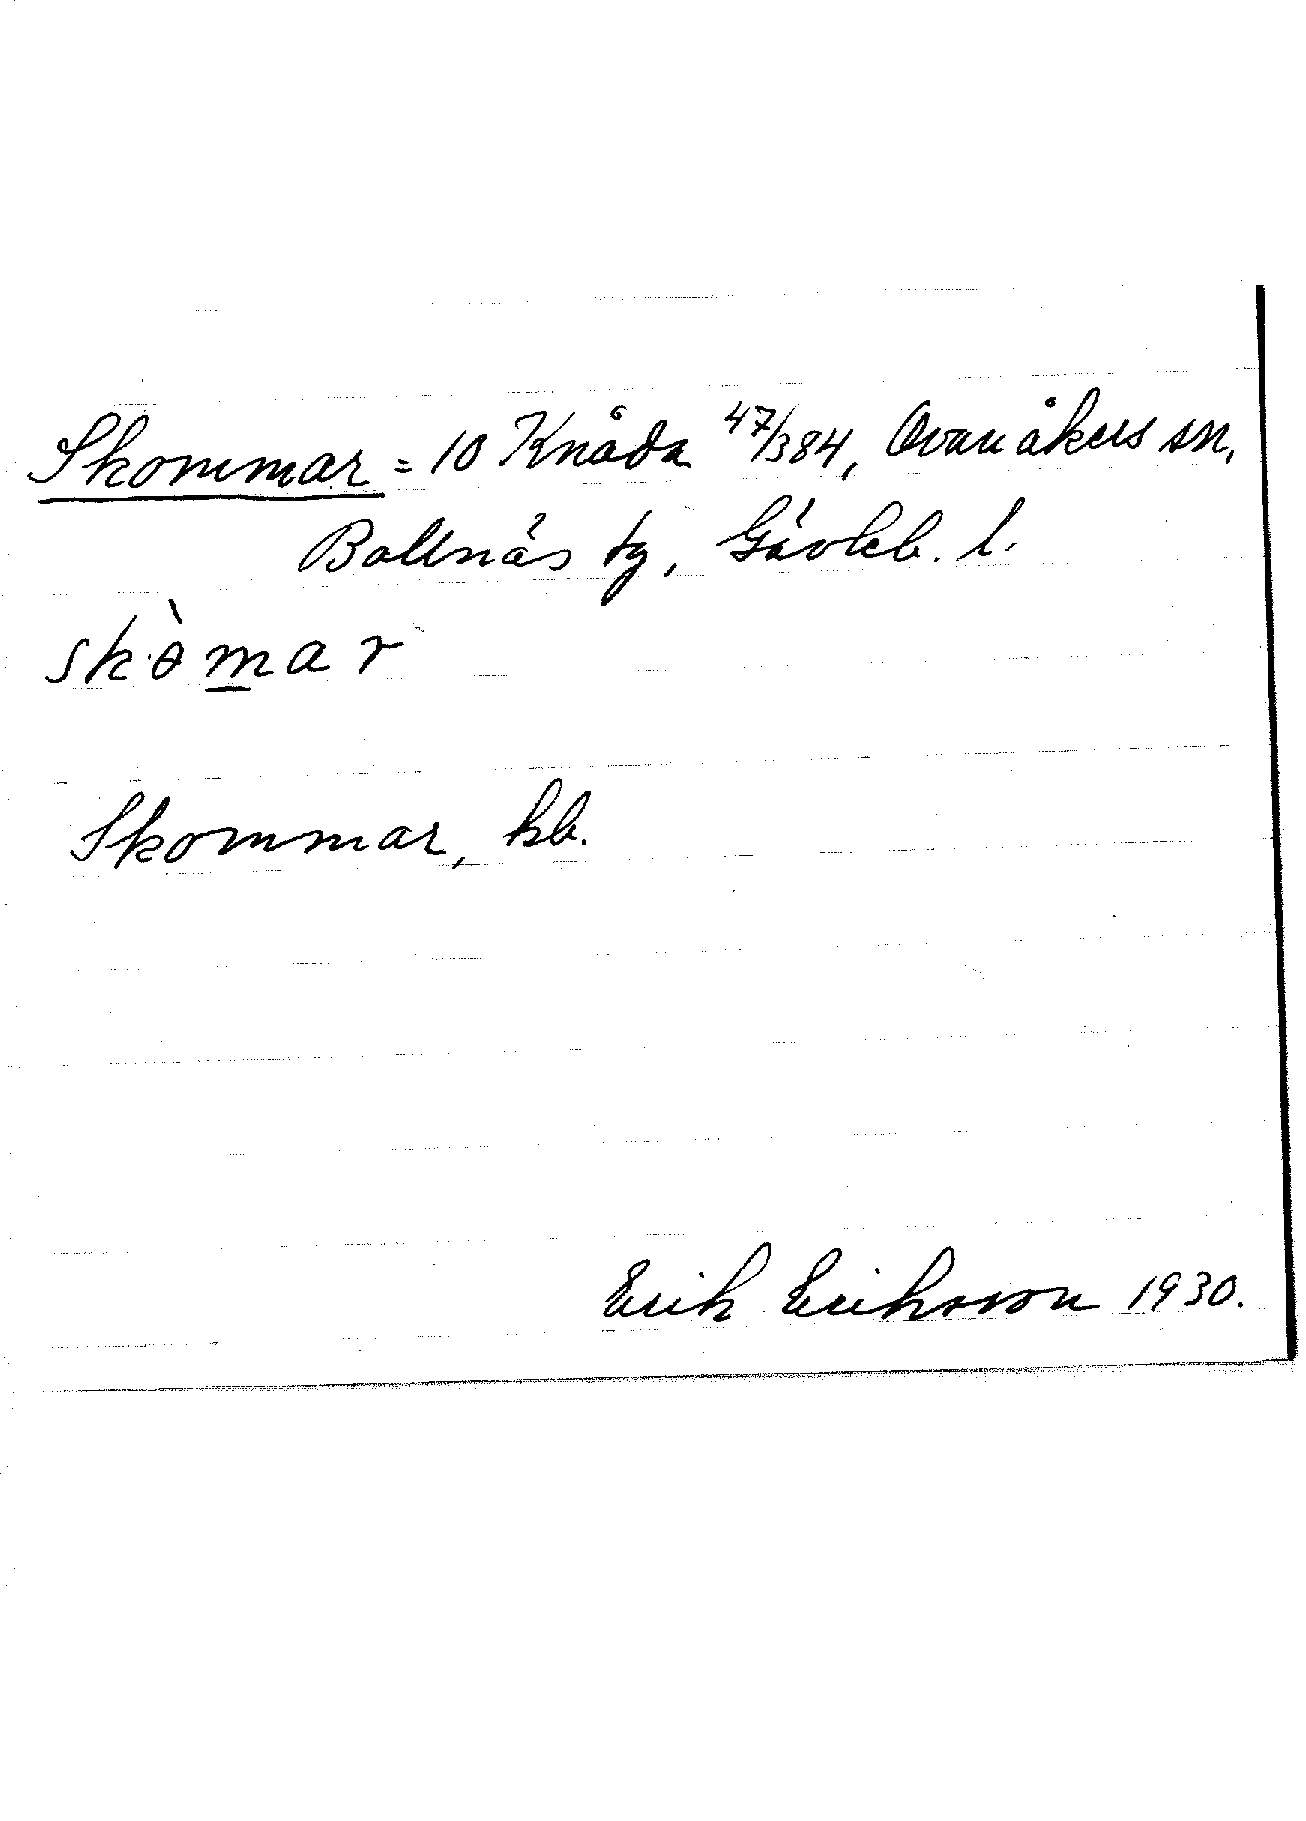 Skommar = 10 Knåda 47/384, Ovanåkers sn,
Bollnäs tg, Gävleb. l.
skòmar
Skommar, hb.
Erik Eriksson 1930.